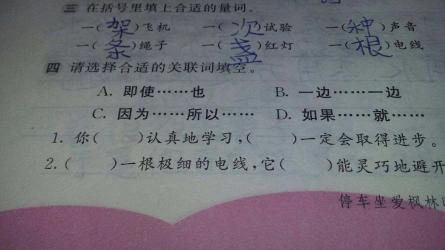 三 在括号里填上合适的量词。
一(架)飞机 一(次)试验 一(种)声音
一(条)绳子 一(盏)红灯 一(根)电线
四 请选择合适的关联词填空。
A. 即使……也 B. 一边………一边
C. 因为……所以…… D. 如果……就……
1. 你( )认真地学习,( )一定会取得进步。
2.( )一根极细的电线,它( )能灵巧地避开
停车坐爱枫林